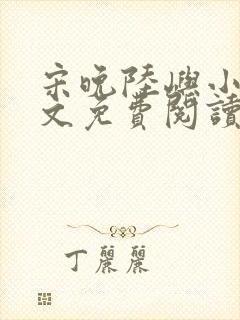 宋晚陸嶼小
文免費閱讀
丁麗麗